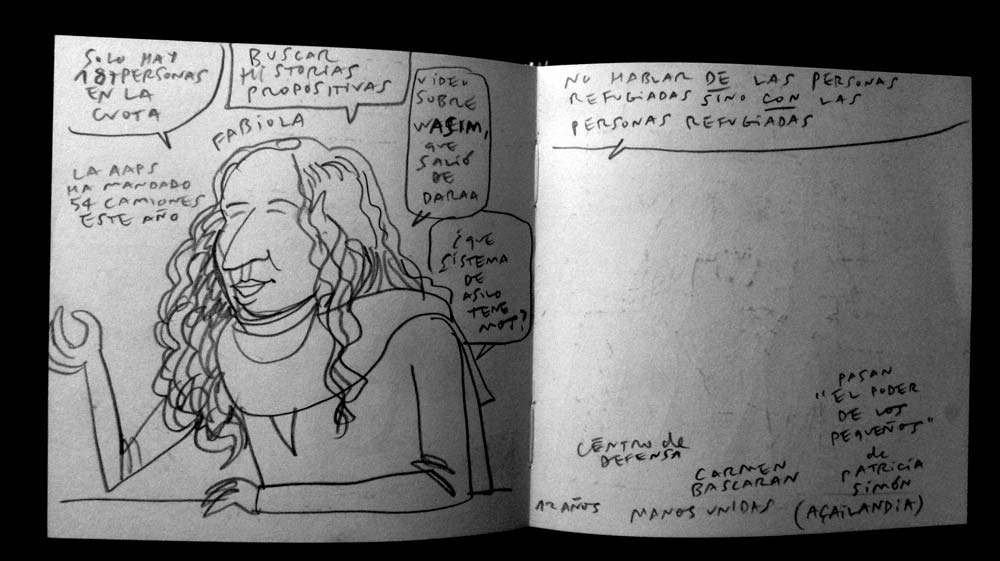 SOLO HAY
187 PERSONAS
EN LA
CUOTA
BUSCAR
HISTORIAS
PROPOSITIVAS
FABIOLA
VIDEO
SOBRE
WASIM,
QUE
SALIÓ
DE
DARAA
LA AAPS
HA MANDADO
54 CAMIONES
ESTE AÑO
¿QUE
SISTEMA
DE
ASILO
TENE
MOS?
NO HABLAR DE LAS PERSONAS
REFUGIADAS SINO CON LAS
PERSONAS REFUGIADAS
PASAN
"EL PODER
DE LOS
PEQUEÑOS"
de
PATRICIA
SIMÓN
(AÇAILANDIA)
CENTRO de
DEFENSA
CARMEN
BASCARAN
12 AÑOS
MANOS UNIDAS